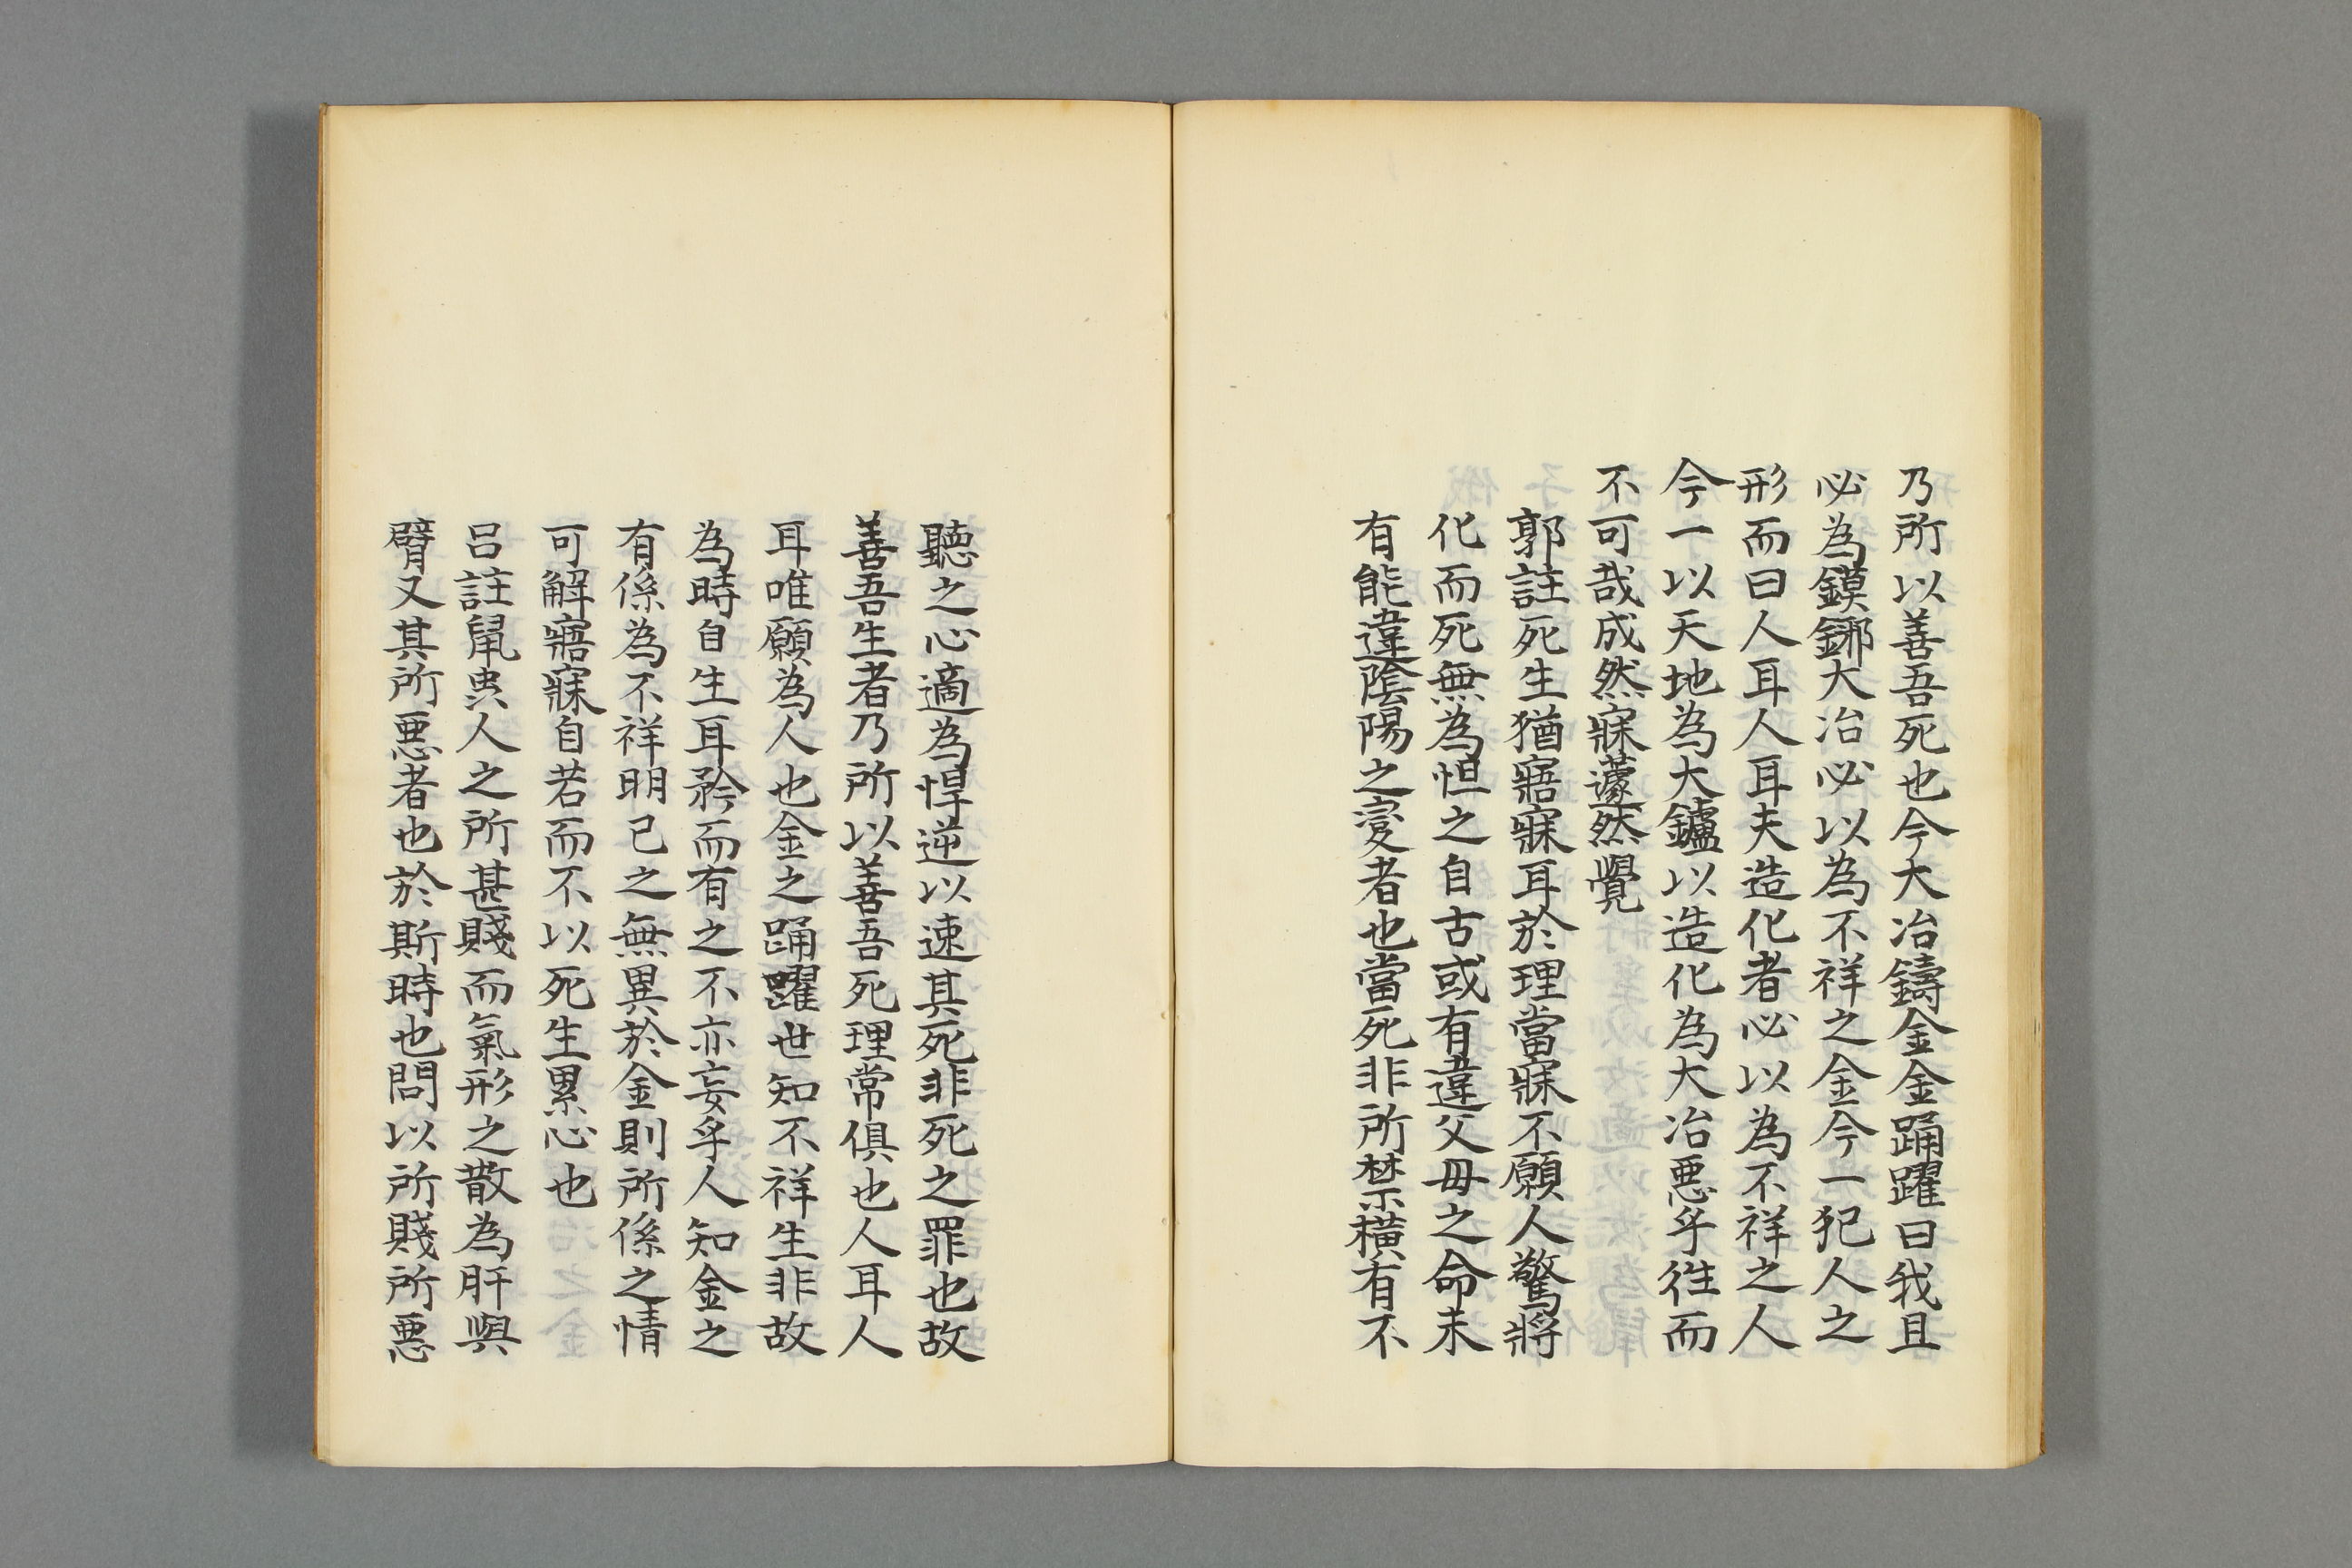 乃所以善吾死也今大冶鑄金金踊躍曰我且
必為鏌鋣大冶必以為不祥之金今一犯人之
形而曰人耳人耳夫造化者必以為不祥之人
今一以天地為大鑪以造化為大冶悪乎徃而
不可哉成然寐蘧然覺
郭註死生猶寤寐耳於理當寐不願人驚將
化而死無為怛之自古或有違父母之命未
有能違陰陽之変者也當死非所禁橫有不
聽之心適為悍逆以速其死非死之罪也故
善吾生者乃所以善吾死理常俱也人耳人
耳唯願為人也金之踊躍世知不祥生非故
為時自生耳矜而有之不亦妄乎人知金之
有係為不祥明已之無異於金則所係之情
可解寤寐自若而不以死生累心也
呂註鼠虫人之所甚賤而氣形之散為肝與
臂又其所悪者也於斯時也問以所賤所悪